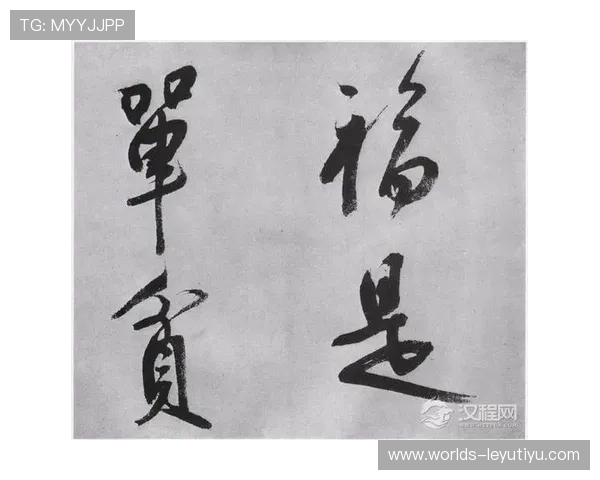 TG: MYYJJPP
福是
單貧
汉程网
www.worlds-leyutiyu.com